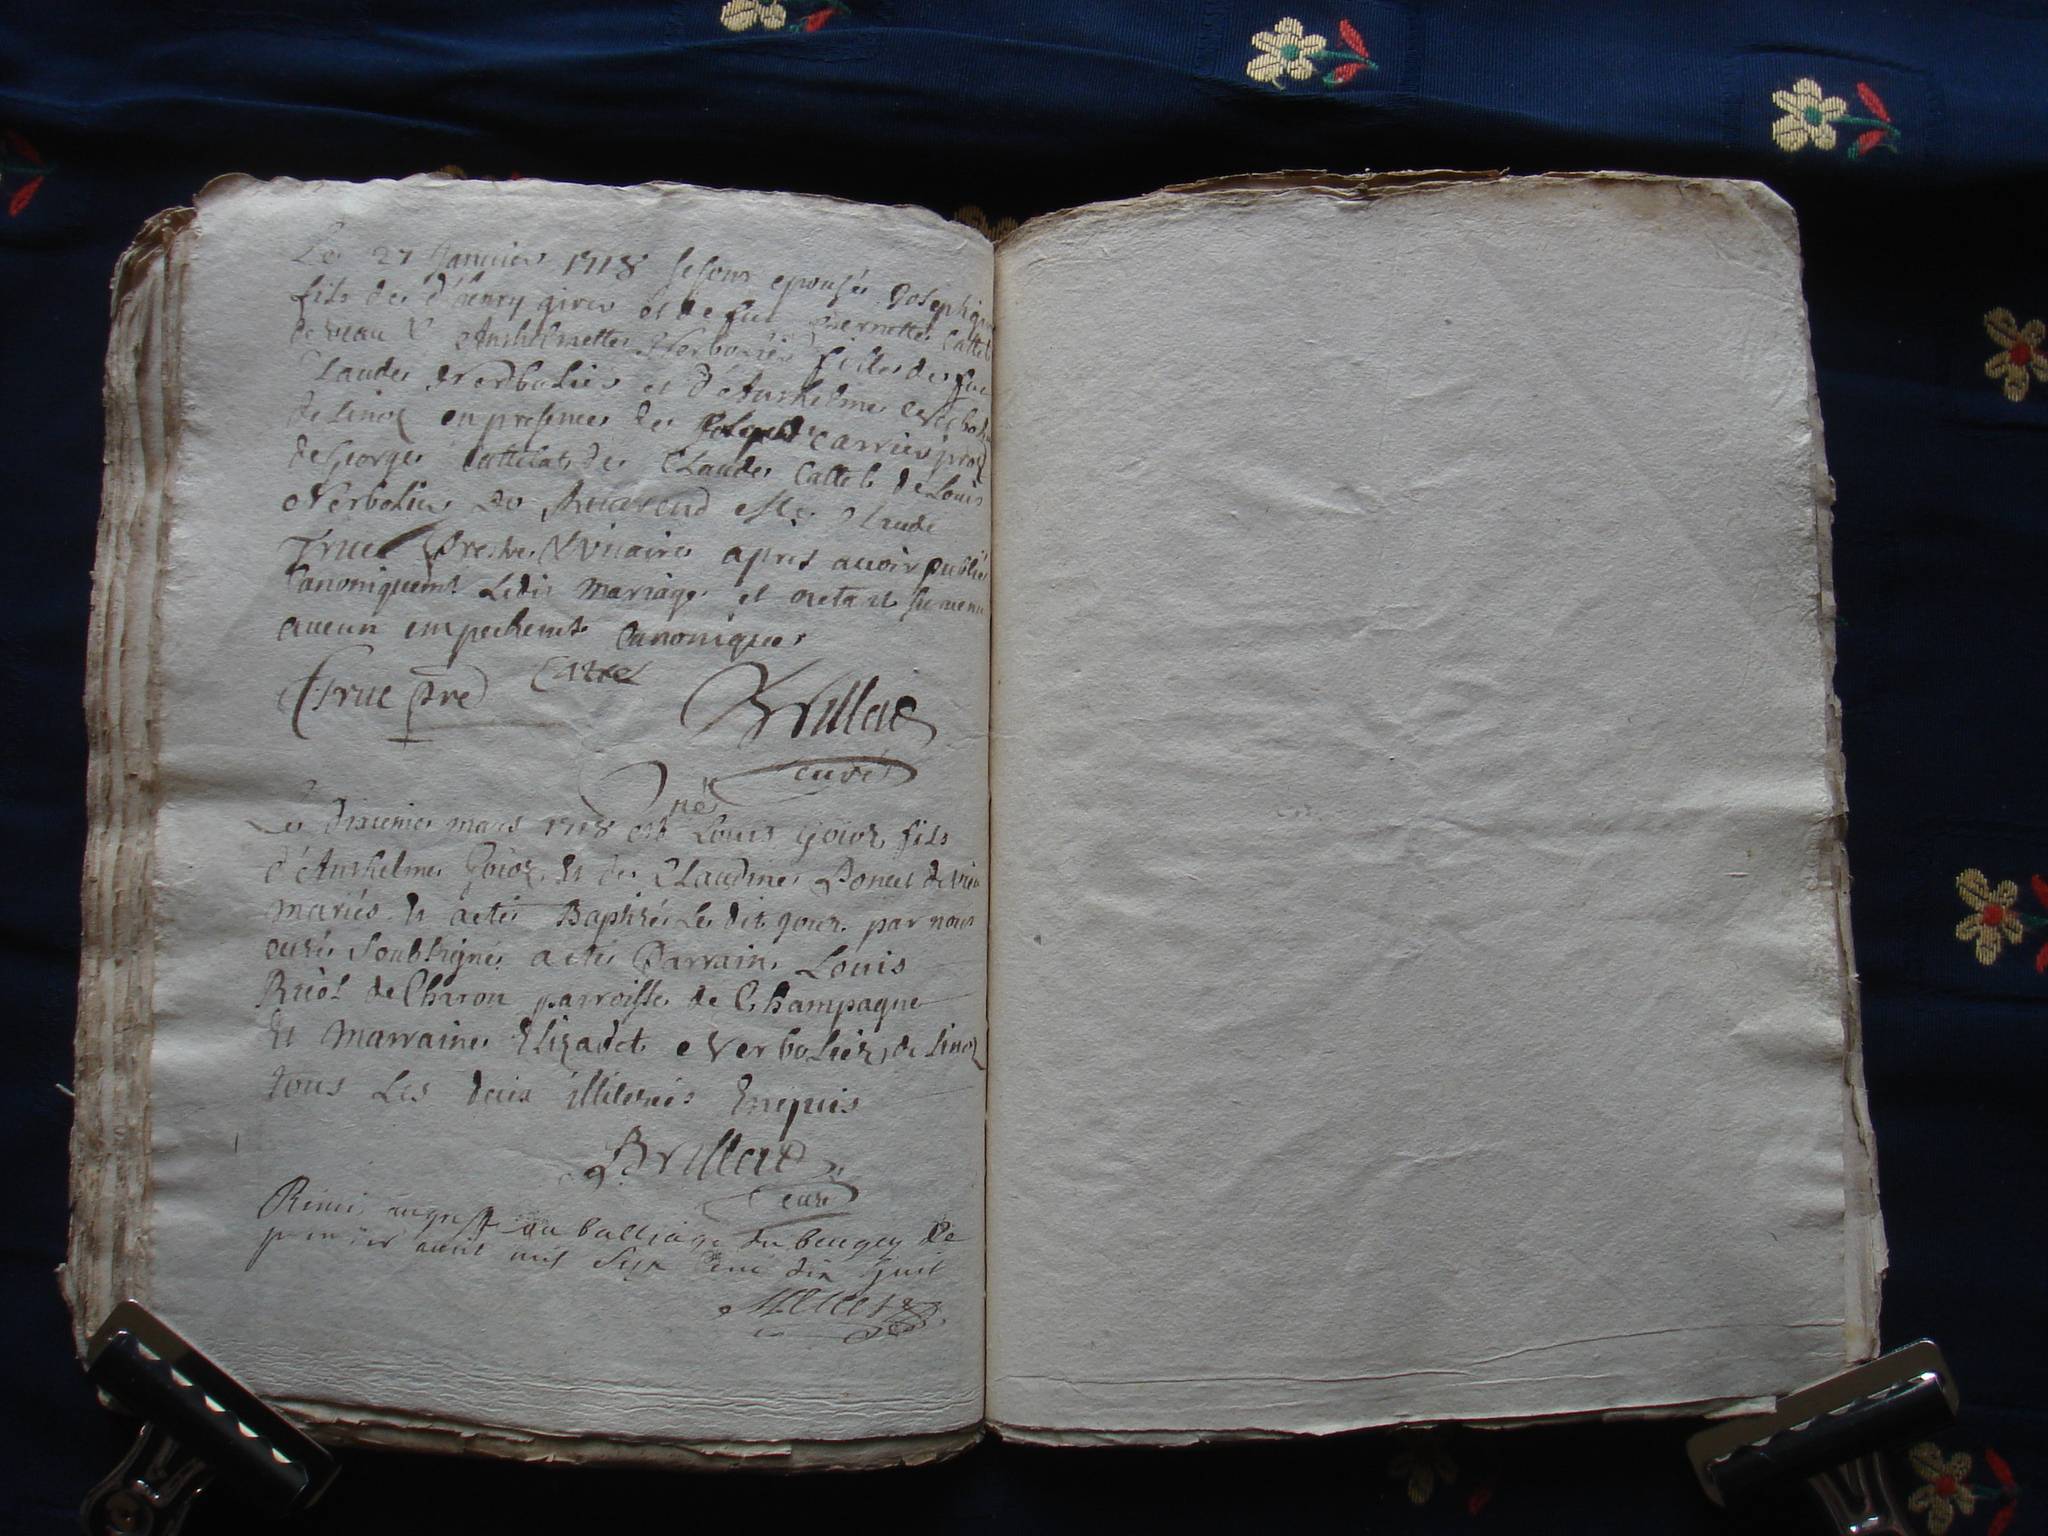 Le 27 Janvier 1718 se sont epousés Joseph
fils de d'henry girer et de fue pernette Cattel
de vieau & Anthelmette Verbolier fille de feu
Claude Verbolier et d'Anthelme
de linod en presence de Joseph Carrier
de George Cattelat de Claude Cattel de Louis
Verbolier Du Reverend Mre Claude
Truc prestre Vicaire apres avoir publié
Canoniquemt Ledit mariage et netant survenu
aucun empechemt Canonique
Truc pre Carrel
Brillat
curé
né
Le dixieme mars 1718 est Louis goioz fils
d'Anthelme goioz Et de Claudine Poncet de vieu
mariés Et a eté Baptizé Le dit jour par nous
curé soubsigné a eté Parrain Louis
de Charon parroisse de Champagne
Et Marraine Elizabet Verbolier de linod
tous Les deux illiterés Enquis
Brillat
curé
au balliage du beugey le
premier avril mil sept cent dix huit